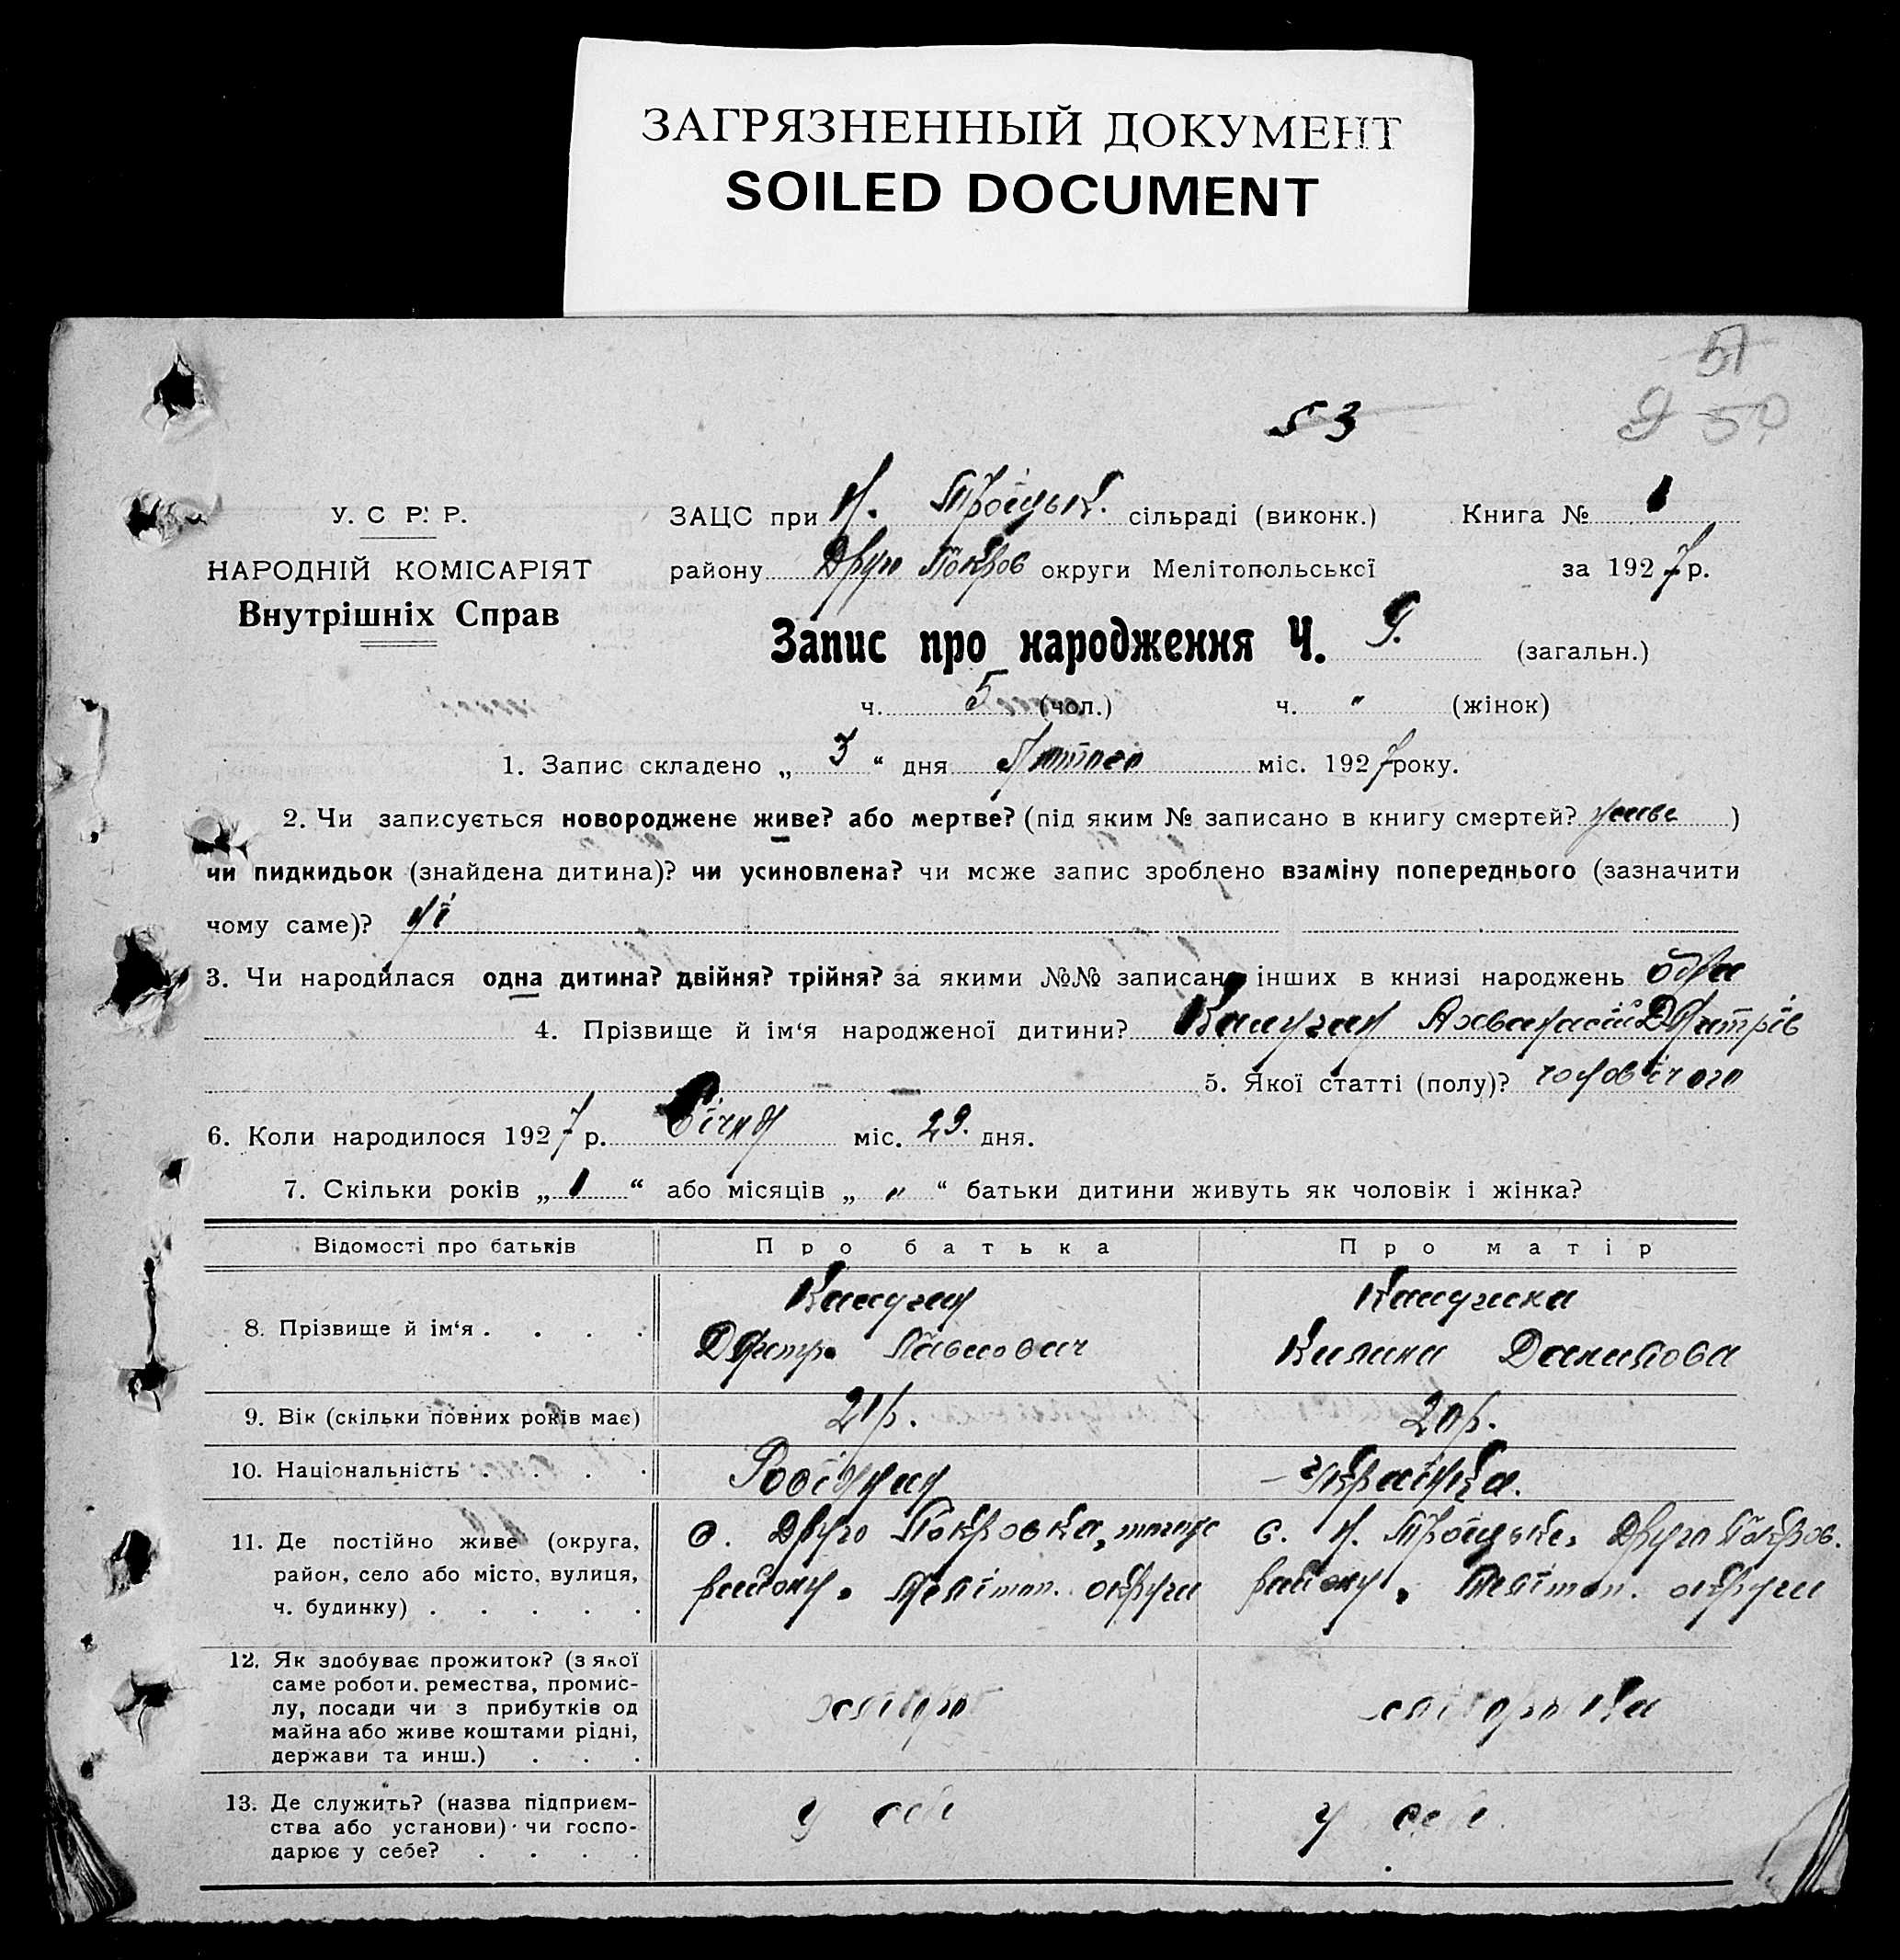 ЗАГРЯЗНЕННЫЙ ДОКУМЕНТ
SOILED DOCUMENT
51
53
9 50
У. С. Р. Р.
НАРОДНІЙ КОМІСАРІЯТ
Внутрішніх Справ
ЗАЦС при Н. Троїцьк. сільраді (виконк.) Книга № 1
району Друго Покров округи Мелітопольської за 1927 р.
Запис про народження Ч. 9. (загальн.)
ч. 5 (чол.) ч. " (жінок)
1. Запис складено „ 3 “ дня Лютого міс. 1927 року.
2. Чи записується новороджене живе? або мертве? (під яким № записано в книгу смертей? живе )
чи пидкидьок (знайдена дитина)? чи усиновлена? чи може запис зроблено взаміну попереднього (зазначити
чому саме)? Ні
3. Чи народилася одна дитина? двійня? трійня? за якими №№ записано інших в книзі народжень одна
4. Прізвище й ім‘я народженої дитини?
5. Якої статті (полу)? чоловічого
6. Коли народилося 1927 р. Січня міс. 29. дня.
7. Скільки років „ 1 “ або місяців „ " “ батьки дитини живуть як чоловік і жінка?
Відомості про батьків Про батька Про матір
8. Прізвище й ім‘я . . . .
Дмитро Павлович Данилова
9. Вік (скільки повних років має) 21 р. 20 р.
10. Національність . . . . Росіянин Українка.
11. Де постійно живе (округа,
район, село або місто, вулиця,
ч. будинку) . . . . .
с. Друго Покровка, того ж с. Н. Троїцьке, Друго Покров.
району, Меліто­п. округи району, Меліто­п. округи
12. Як здобуває прожиток? (з якої
саме роботи, ремества, промис-
лу, посади чи з прибутків од
майна або живе коштами рідні,
держави та инш.) . . .
13. Де служить? (назва підприєм-
ства або установи) чи госпо-
дарює у себе? . . . .
у себе у себе